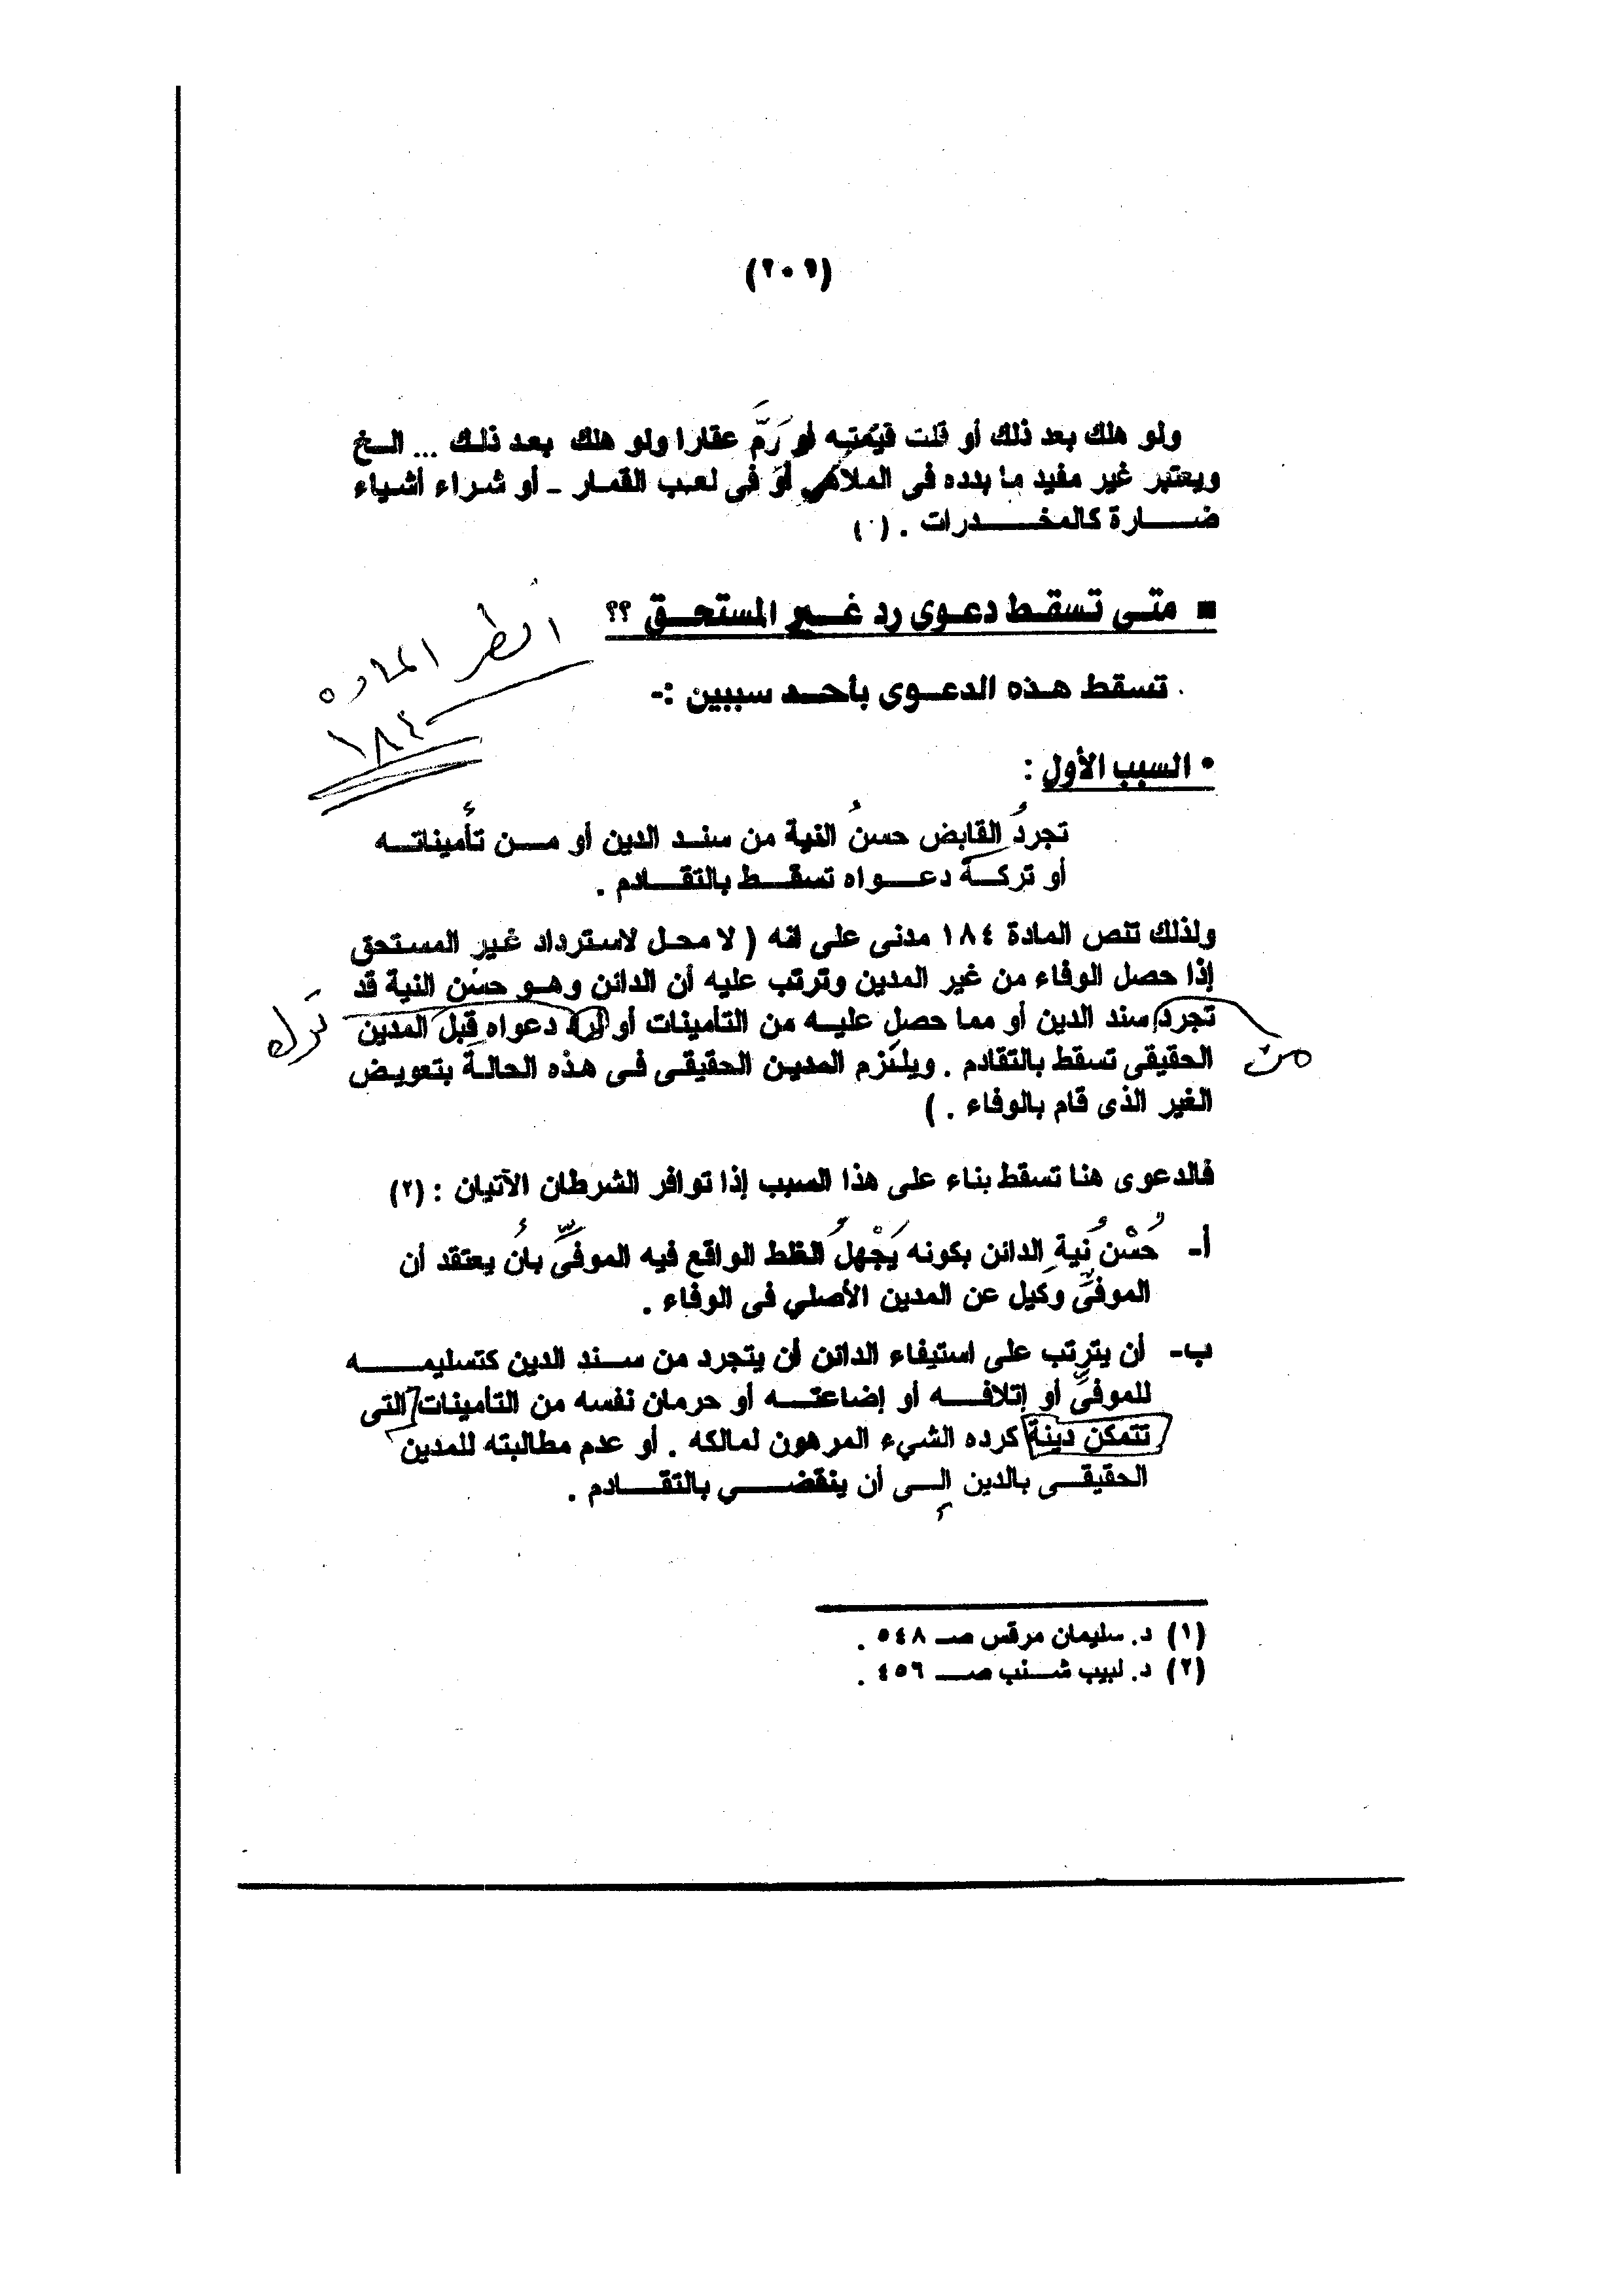 (٢٠٩)
ولو هلك بعد ذلك أو قلت قيمته أو رَمَّ عقارا ولو هلك بعد ذلك ... الخ
ويعتبر غير مفيد ما بدده فى الملاهي أو فى لعب القمار - أو شراء أشياء
ضارة كالمخدرات . (١)
■ متى تسقط دعوى رد غير المستحق ؟؟
انظر الماده
١٨٤
تسقط هذه الدعوى بأحد سببين :-
• السبب الأول :
تجردُ القابض حسنُ النية من سند الدين أو من تأميناته
أو تركة دعواه تسقط بالتقادم .
ولذلك تنص المادة ١٨٤ مدنى على انه ( لا محل لاسترداد غير المستحق
إذا حصل الوفاء من غير المدين وترتب عليه أن الدائن وهو حسن النية قد
تجرد سند الدين أو مما حصل عليه من التأمينات أو دعواه قبل المدين
من
ترك
الحقيقى تسقط بالتقادم . ويلتزم المدين الحقيقى فى هذه الحالة بتعويض
الغير الذى قام بالوفاء . )
فالدعوى هنا تسقط بناء على هذا السبب إذا توافر الشرطان الآتيان : (٢)
أ- حُسْن نية الدائن بكونه يَجْهلُ الغلط الواقع فيه الموفىِّ بأن يعتقد أن
الموفىِّ وكيل عن المدين الأصلي فى الوفاء .
ب- أن يترتب على استيفاء الدائن أن يتجرد من سند الدين كتسليمه
للموفىِّ أو إتلافه أو إضاعته أو حرمان نفسه من التأمينات التى
تتمكن دينة كرده الشيء المرهون لمالكه . أو عدم مطالبته للمدين
الحقيقى بالدين إلى أن ينقضي بالتقادم .
(١) د. سليمان مرقس صـ ٥٤٨ .
(٢) د. لبيب شنب صـ ٤٥٦ .